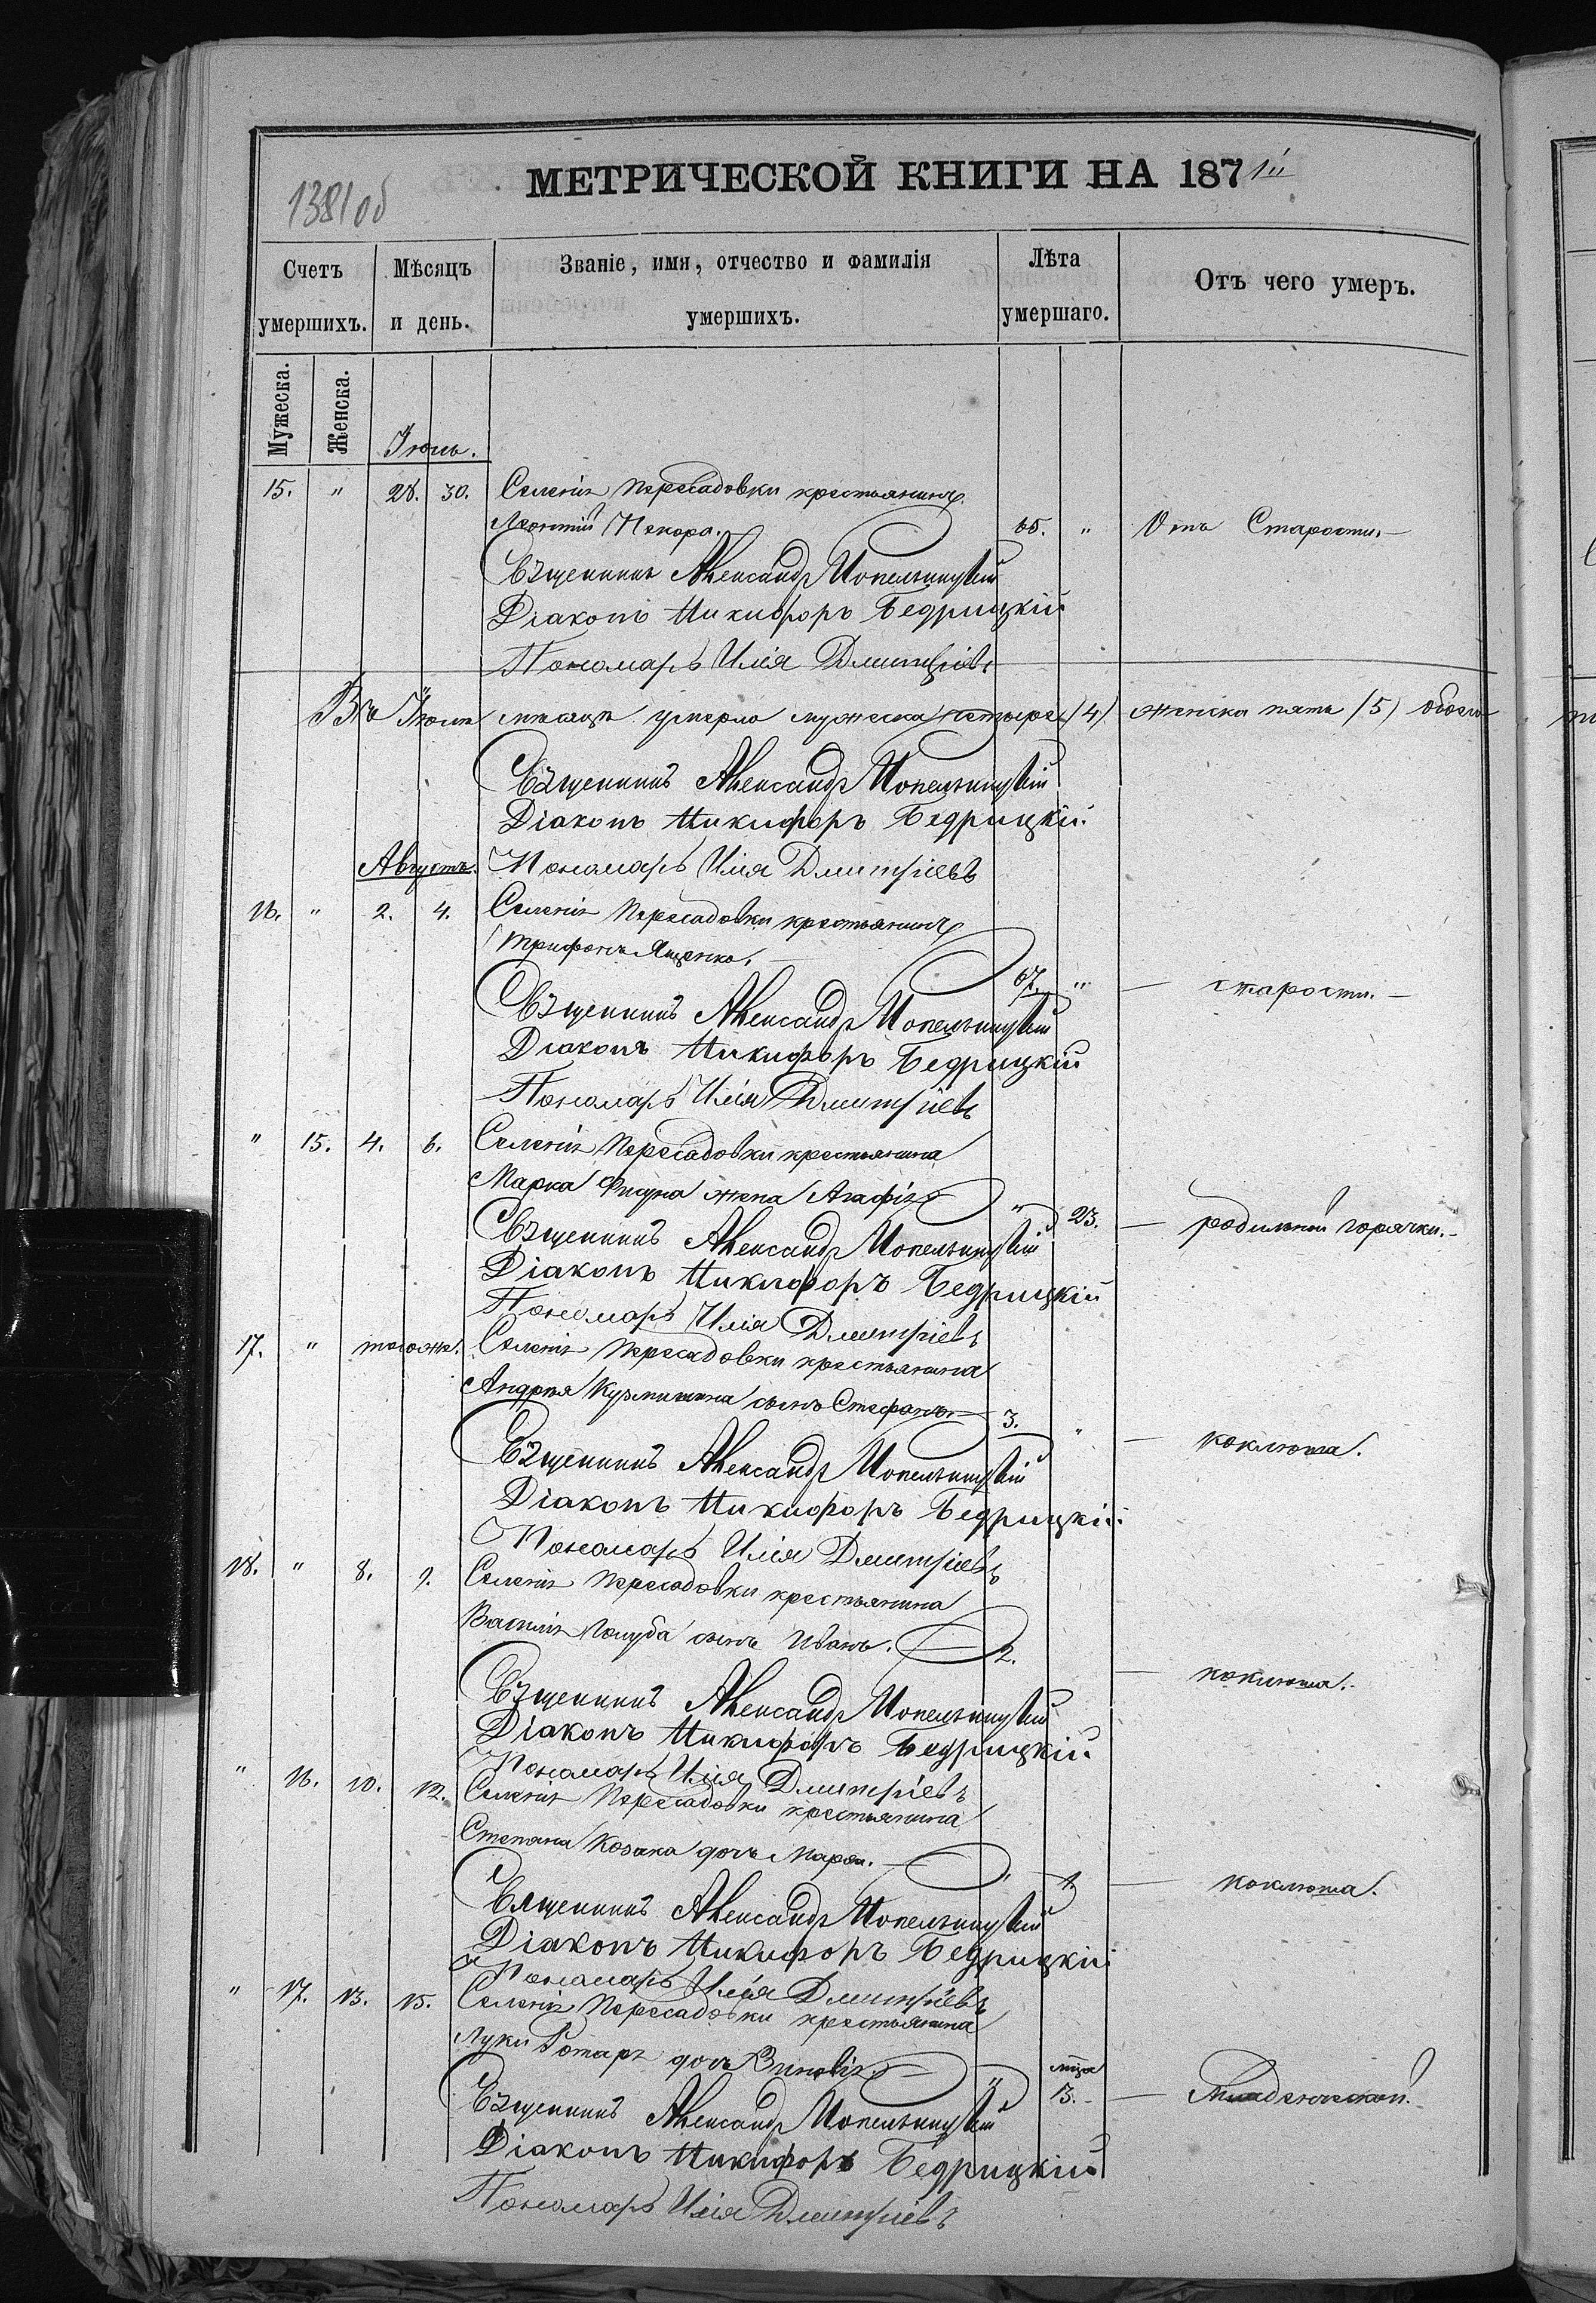 138 об
МЕТРИЧЕСКОЙ КНИГИ НА 1871й
Счетъ умершихъ.
Мѣсяцъ и день.
Званіе, имя, отчество и фамилія умершихъ.
Лѣта умершаго.
Отъ чего умеръ.
Мужеска.
Женска.
Іюль.
15. " 28. 30. Селенія Пересадовки крестьянинъ
Леонтій 65. " Отъ Старости.
Священникъ Александръ
Діаконъ Никифоръ Бедрицкій
Пономарь Илія Дмитріевъ
Въ Іюлѣ мѣсяцѣ умерло мужеска четыре (4) женска пять (5) обоего
Священникъ Александръ
Діаконъ Никифоръ Бедрицкій
Августъ. Пономарь Илія Дмитріевъ
16. " 2. 4. Селенія Пересадовки крестьянинъ
Трифонъ Яценко. 67. " — старости. —
Священникъ Александръ
Діаконъ Никифоръ Бедрицкій
Пономарь Илія Дмитріевъ
" 15. 4. 6. Селенія Пересадовки крестьянина
Марка жена Агафія " 23. — родильной горячки. —
Священникъ Александръ
Діаконъ Никифоръ Бедрицкій
Пономарь Илія Дмитріевъ
17. " тогоже. Селенія Пересадовки крестьянина
Андрея сынъ Стефанъ. — 3. " — коклюша.
Священникъ Александръ
Діаконъ Никифоръ Бедрицкій
Пономарь Илія Дмитріевъ
18. " 8. 9. Селенія Пересадовки крестьянина
Василія Голуба сынъ Иванъ. 2. — коклюша.
Священникъ Александръ
Діаконъ Никифоръ Бедрицкій
Пономарь Илія Дмитріевъ
" 16. 10. 12. Селенія Пересадовки крестьянина
Степана Козака дочь Марія. — " 1. — коклюша.
Священникъ Александръ
Діаконъ Никифоръ Бедрицкій
Пономарь Илія Дмитріевъ
" 17. 13. 15. Селенія Пересадовки крестьянина
Луки Ротаря дочь Зиновія — " мца 3. — Младенческой.
Священникъ Александръ
Діаконъ Никифоръ Бедрицкій
Пономарь Илія Дмитріевъ